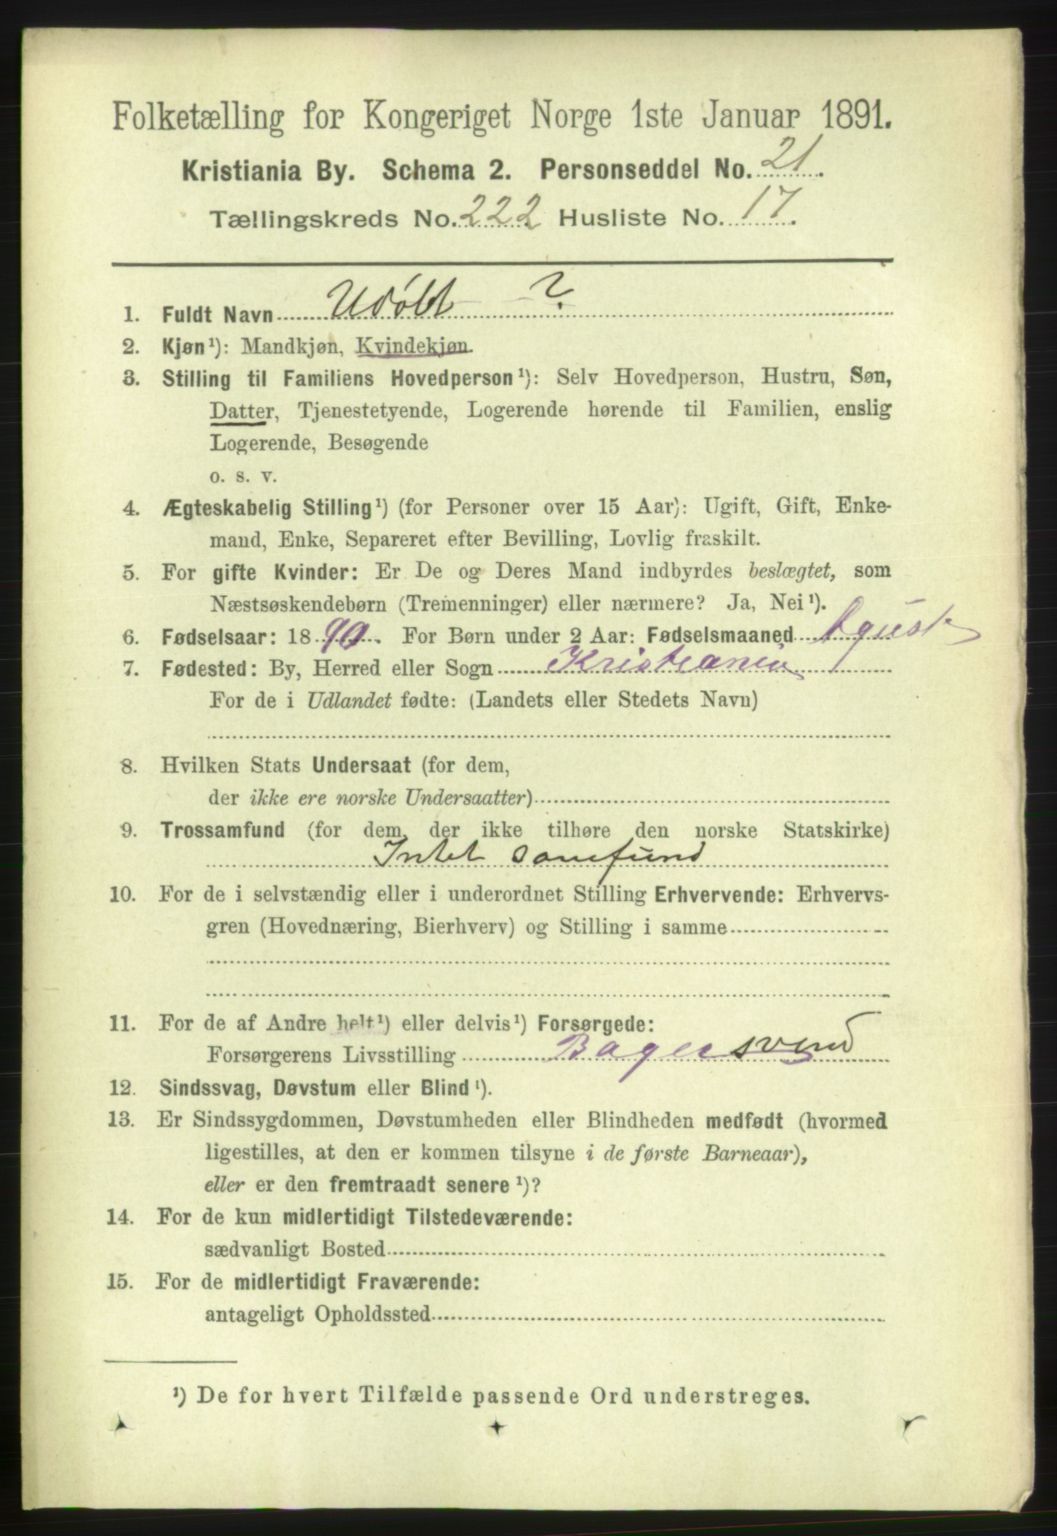 Folketælling for Kongeriget Norge 1ste Januar 1891.
Kristiania By. Schema 2. Personseddel No. 21.
Tællingskreds No. 222 Husliste No. 17.
1. Fuldt Navn Udøbt ?
2. Kjøn¹): Mandkjøn, Kvindekjøn.
3. Stilling til Familiens Hovedperson¹): Selv Hovedperson, Hustru, Søn,
Datter, Tjenestetyende, Logerende hørende til Familien, enslig
Logerende, Besøgende
o. s. v.
4. Ægteskabelig Stilling¹) (for Personer over 15 Aar): Ugift, Gift, Enke-
mand, Enke, Separeret efter Bevilling, Lovlig fraskilt.
5. For gifte Kvinder: Er De og Deres Mand indbyrdes beslægtet, som
Næstsøskendebørn (Tremenninger) eller nærmere? Ja, Nei¹).
6. Fødselsaar: 1890. For Børn under 2 Aar: Fødselsmaaned Agust
7. Fødested: By, Herred eller Sogn Kristiania
For de i Udlandet fødte: (Landets eller Stedets Navn)
8. Hvilken Stats Undersaat (for dem,
der ikke ere norske Undersaatter)
9. Trossamfund (for dem, der ikke tilhøre den norske Statskirke)
Intet samfund
10. For de i selvstændig eller i underordnet Stilling Erhvervende: Erhvervs-
gren (Hovednæring, Bierhverv) og Stilling i samme
11. For de af Andre helt¹) eller delvis¹) Forsørgede:
Forsørgerens Livsstilling Bagersvend
12. Sindssvag, Døvstum eller Blind¹).
13. Er Sindssygdommen, Døvstumheden eller Blindheden medfødt (hvormed
ligestilles, at den er kommen tilsyne i de første Barneaar),
eller er den fremtraadt senere¹)?
14. For de kun midlertidigt Tilstedeværende:
sædvanligt Bosted
15. For de midlertidigt Fraværende:
antageligt Opholdssted
¹) De for hvert Tilfælde passende Ord understreges.